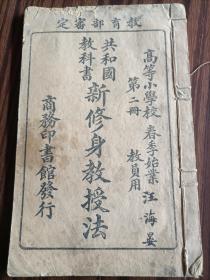 教育部審定
高等小學校 春季始業
第二冊 教員用
汪海晏
共和國教科書
新修身教授法
商務印書館發行